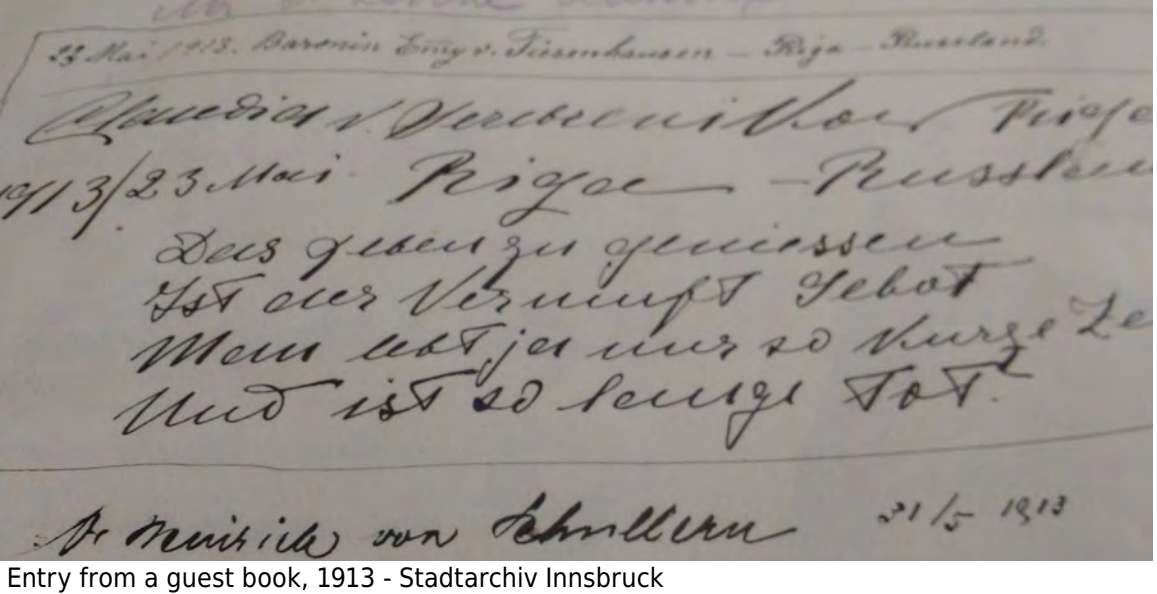 23 Mai 1913. Baronin Emy v. Tiesenhausen – Riga – Russland.
Claudia v.
1913/23 Mai. Riga – Russlan
Das Leben zu geniessen
Ist der Vernunft Gebot
Man lebt ja nur so kurze Ze
Und ist so lange Tot.
Dr Heinrich von Schullern 31/5 1913
Entry from a guest book, 1913 - Stadtarchiv Innsbruck